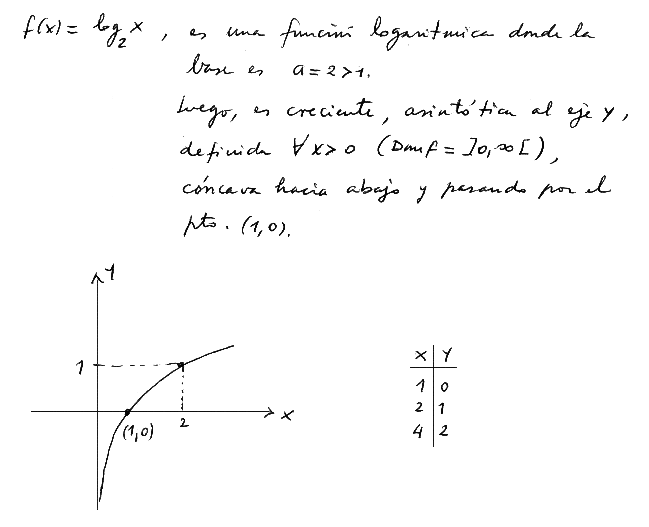 f(x) = log₂x, es una función logarítmica donde la
base es a = 2 > 1.
Luego, es creciente, asintótica al eje Y,
definida ∀ x > 0 (Dom f = ]0, ∞[),
cóncava hacia abajo y pasando por el
pto. (1,0).
Y
1
(1,0)
2
X
X Y
1 0
2 1
4 2